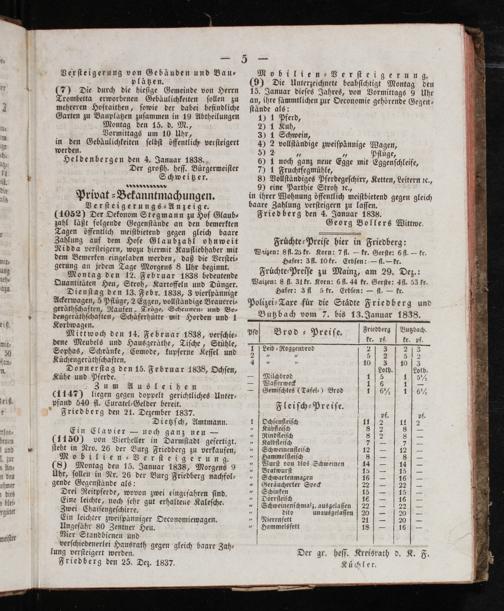 — 5 —
Versteigerung von Gebäuden und Bau-
plätzen.
(7) Die durch die hiesige Gemeinde von Herrn
Trombetta erworbenen Gebäulichkeiten sollen zu
mehreren Hofraithen, sowie der dabei befindliche
Garten zu Bauplätzen zusammen in 19 Abtheilungen
Montag den 15. d. M.,
Vormittags um 10 Uhr,
in den Gebäulichkeiten selbst öffentlich versteigert
werden.
Heldenbergen den 4. Januar 1838.
Der großh. hess. Bürgermeister
Schweitzer.
Privat-Bekanntmachungen.
Versteigerungs-Anzeige.
(1052) Der Oekonom Stegmann zu Hof Glaub-
zahl läßt folgende Gegenstände an den bemerkten
Tagen öffentlich meistbietend gegen gleich baare
Zahlung auf dem Hofe Glaubzahl ohnweit
Nidda versteigern, wozu hiermit Kaufliebhaber mit
dem Bemerken eingeladen werden, daß die Verstei-
gerung an jedem Tage Morgens 8 Uhr beginnt.
Montag den 12. Februar 1838 bedeutende
Quantitäten Heu, Stroh, Kartoffeln und Dünger.
Dienstag den 13. Febr. 1838, 3 vierspännige
Ackerwagen, 5 Pflüge, 2 Eggen, vollständige Brauerei-
geräthschaften, Raufen, Tröge, Scheuern- und Bo-
dengeräthschaften, Schäferhütte mit Horden und 1
Korbwagen.
Mittwoch den 14. Februar 1838, verschie-
dene Meubels und Hausgeräthe, Tische, Stühle,
Sophas, Schränke, Comode, kupferne Kessel und
Küchengeräthschaften.
Donnerstag den 15. Februar 1838, Ochsen,
Kühe und Pferde.
Zum Ausleihen
(1147) liegen gegen doppelt gerichtliches Unter-
pfand 540 fl. Curatel-Gelder bereit.
Friedberg den 21. Dezember 1837.
Dietsch, Amtmann.
Ein Clavier — noch ganz neu —
(1150) von Bierheller in Darmstadt gefertigt,
steht in Nro. 26 der Burg Friedberg zu verkaufen,
Mobilien-Versteigerung.
(8) Montag den 15. Januar 1838, Morgens 9
Uhr, sollen in Nr. 26 der Burg Friedberg nachfol-
gende Gegenstände als:
Drei Reitpferde, wovon zwei eingefahren sind.
Eine leichte, noch sehr gut erhaltene Kalesche.
Zwei Chaisengeschirre.
Ein leichter zweispänniger Oeconomiewagen.
Ungefähr 80 Zentner Heu.
Vier Standbienen und
verschiedenerlei Hausrath gegen gleich baare Zah-
lung versteigert werden.
Friedberg den 25. Dez. 1837.
Mobilien-Versteigerung.
(9) Die Unterzeichnete beabsichtigt Montag den
15. Januar dieses Jahres, von Vormittags 9 Uhr
an, ihre sämmtlichen zur Oeconomie gehörende Gegen-
stände als:
1) 1 Pferd,
2) 1 Kuh,
3) 1 Schwein,
4) 2 vollständige zweispännige Wagen,
5) 2 „ „ Pflüge,
6) 1 noch ganz neue Egge mit Eggenschleife,
7) 1 Fruchtfegmühle,
8) Vollständiges Pferdegeschirr, Ketten, Leitern ꝛc.,
9) eine Parthie Stroh ꝛc.,
in ihrer Wohnung öffentlich meistbietend gegen gleich
baare Zahlung versteigern zu lassen.
Friedberg den 4. Januar 1838.
Georg Bollers Wittwe.
Früchte-Preise hier in Friedberg:
Waizen: 8 fl. 25 kr. Korn: 7 fl. — kr. Gerste: 6 fl. — kr.
Hafer: 3 fl. 10 kr. Erbsen: — fl. — kr.
Früchte-Preise zu Mainz, am 29. Dez.:
Waizen: 8 fl. 31 kr. Korn: 6 fl. 44 kr. Gerste: 4 fl. 53 kr.
Hafer: 3 fl. 5 kr. Erbsen: — fl. — kr.
Polizei-Taxe für die Städte Friedberg und
Butzbach vom 7. bis 13. Januar 1838.
Pfd Brod-Preise. Friedberg Butzbach.
kr. pf. kr. pf.
1 Leib-Roggenbrod 2 3 2 3
2 „ „ 5 2 5 2
4 „ „ 10 3 10 3
Loth. Loth.
— Milchbrod 1 5 1 5½
— Wasserweck 1 6 1
— Gemischtes (Tafel-) Brod 1 6½ 1 6½
Fleisch-Preise.
pf. pf.
1 Ochsenfleisch 11 2
„ Kuhfleisch 8 2 8 —
„ Rindfleisch 8 2 8 —
„ Kalbfleisch 7 — 7 —
„ Schweinenfleisch 12 — 12 —
„ Hammelsfleisch 8 — 9 —
„ Wurst von blos Schweinen 14 — 14 —
„ Bratwurst 15 — 15 —
„ Schwartenmagen 16 — 16 —
„ Geräucherter Speck 22 — 22 —
„ Schinken 15 — 15 —
„ Dörrfleisch 16 — 16 —
„ Schweinenschmalz, ausgelassen 22 — 22 —
„ dito unausgelassen 20 — 20 —
„ Nierenfett 21 — 20 —
„ Hammelsfett 18 — 16 —
Der gr. hess. Kreisrath d. K. F.
Küchler.